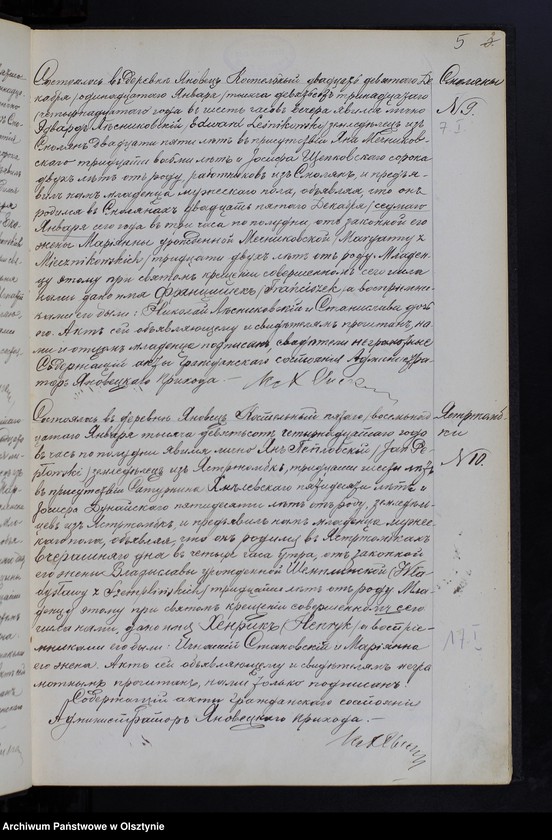 5
Состоялось въ деревнѣ Яновецъ Костельный двадцать девятаго Де
кабря/одиннадцатаго Января/тысяча девятьсотъ тринадцатаго
/четырнадцатаго года въ шесть часовъ вечера явился лично
Эдвардъ Лѣсниковскій /Edward Leśnikowski/ земледѣлецъ изъ
Смолянъ двадцати пяти лѣтъ въ присутствіи Яна Мечников-
скаго тридцати восьми лѣтъ и Іосифа Щепковскаго сорока
двухъ лѣтъ отъ роду, работниковъ изъ Смолянъ, и предъя-
вилъ намъ младенца мужескаго пола, объявляя, что онъ
родился въ Смолянахъ двадцать пятаго Декабря /седьмаго
Января сего года въ три часа по полудни отъ законной его
жены Маріянны урожденной Мечниковской /Maryanny z
Miecznikowskich/ тридцати двухъ лѣтъ отъ роду. Младен-
цу этому при святомъ крещеніи совершенномъ сего числа
нами дано имя Францишекъ /Franciszek/, а воспріемни-
ками его были: Николай Лѣсниковскій и Станислава
Актъ сей объявляющему и свидѣтелямъ прочитанъ, на-
ми и отцомъ младенца подписанъ свидѣтели неграмотные
Содержащій акты гражданскаго состоянія Администра-
торъ Яновецкаго прихода. —
Смоляны
№ 9.
7 I.
Состоялось въ деревнѣ Яновецъ Костельный пятаго /восемнад
цатаго Января тысяча девятьсотъ четырнадцатаго года
въ часъ по полудни явился лично Янъ /Jan
земледѣлецъ изъ Ястржомбкъ, тридцати шести лѣтъ
въ присутствіи Сатурнина Хмѣлевскаго пятидесяти лѣтъ и
Іосифа Дунайскаго пятидесяти лѣтъ отъ роду, земледѣль-
цевъ изъ Ястржомбкъ, и предъявилъ намъ младенца мужес-
каго пола, объявляя, что онъ родился въ Ястржомбкахъ
вчерашняго дня въ четыре часа утра, отъ законной
его жены Владиславы урожденной /Wła
dysławy z тридцати лѣтъ отъ роду. Мла-
денцу этому при святомъ крещеніи совершенномъ сего
числа нами, дано имя Хенрикъ /Henryk/ а воспріе-
мниками его были: Игнатій Становскій и Маріянна
его жена. Актъ сей объявляющему и свидѣтелямъ негра
мотнымъ прочитанъ, нами только подписанъ.
Содержащій акты гражданскаго состоянія
Администраторъ Яновецкаго прихода. —
№ 10.
17 I
Archiwum Państwowe w Olsztynie